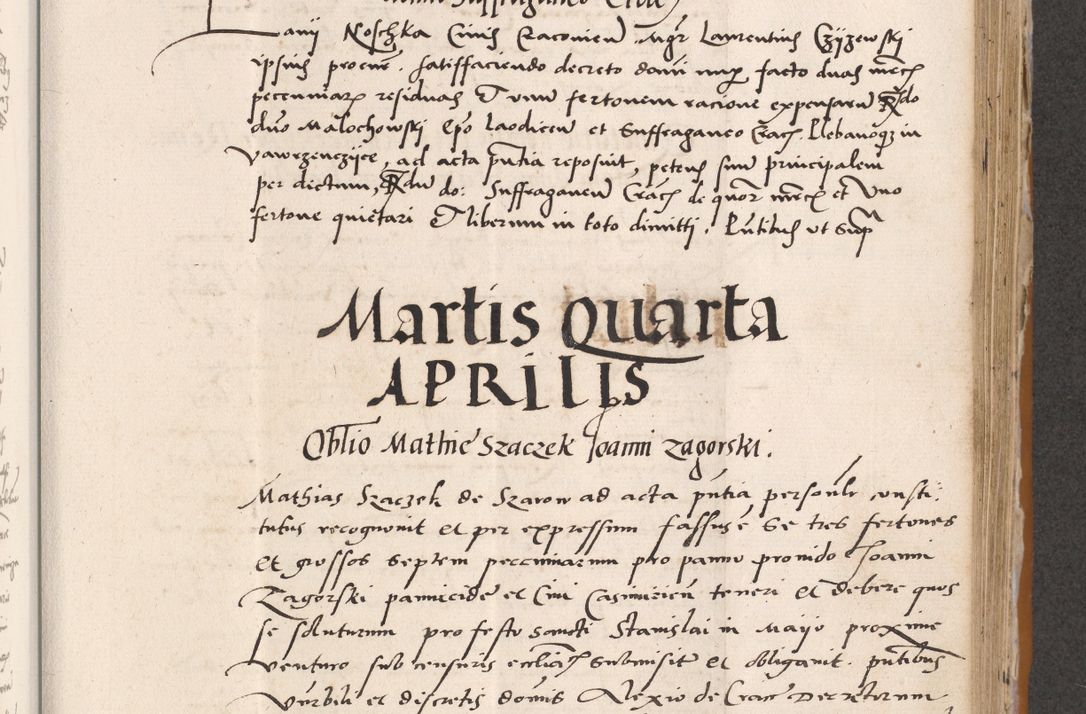 Suffraganeo
Noschka Civis Cracovien Mgr Laurentius Czyzewski
ipsius procur. satisfaciendo decreto facto duas mrcs
pecuniarz residuas Et unu fertonem racione expensaru Rdo
dno Malochowski Epo Laodiceu et Suffraganeo Crac. in
ad acta pntia reposuit, petens suu principalem
per dictum, Rdu do: Suffraganeu Crac de quor mrcs et uno
fertone quietari Et liberum in toto dimitti. Pntibus ut Sup
Martis Quarta
APRILIS
Oblio Mathie Szaczek Joanni Zagorski.
Mathias Szaczek de Szarow ad acta pntia personlr consti:
tutus recognovit et per expressum fassus e Se tres fertones
et grossos Septem pecuniarum pro panno provido Joanni
Zagorski pannicide et Civi Casimirien teneri et debere quos
se soluturum pro festo Sancti Stanislai in Mayo proxime
venturo sub censuris ecclias Submisit et obligavit. pntibus
et discretis domis Alexio de Crac Decretorum